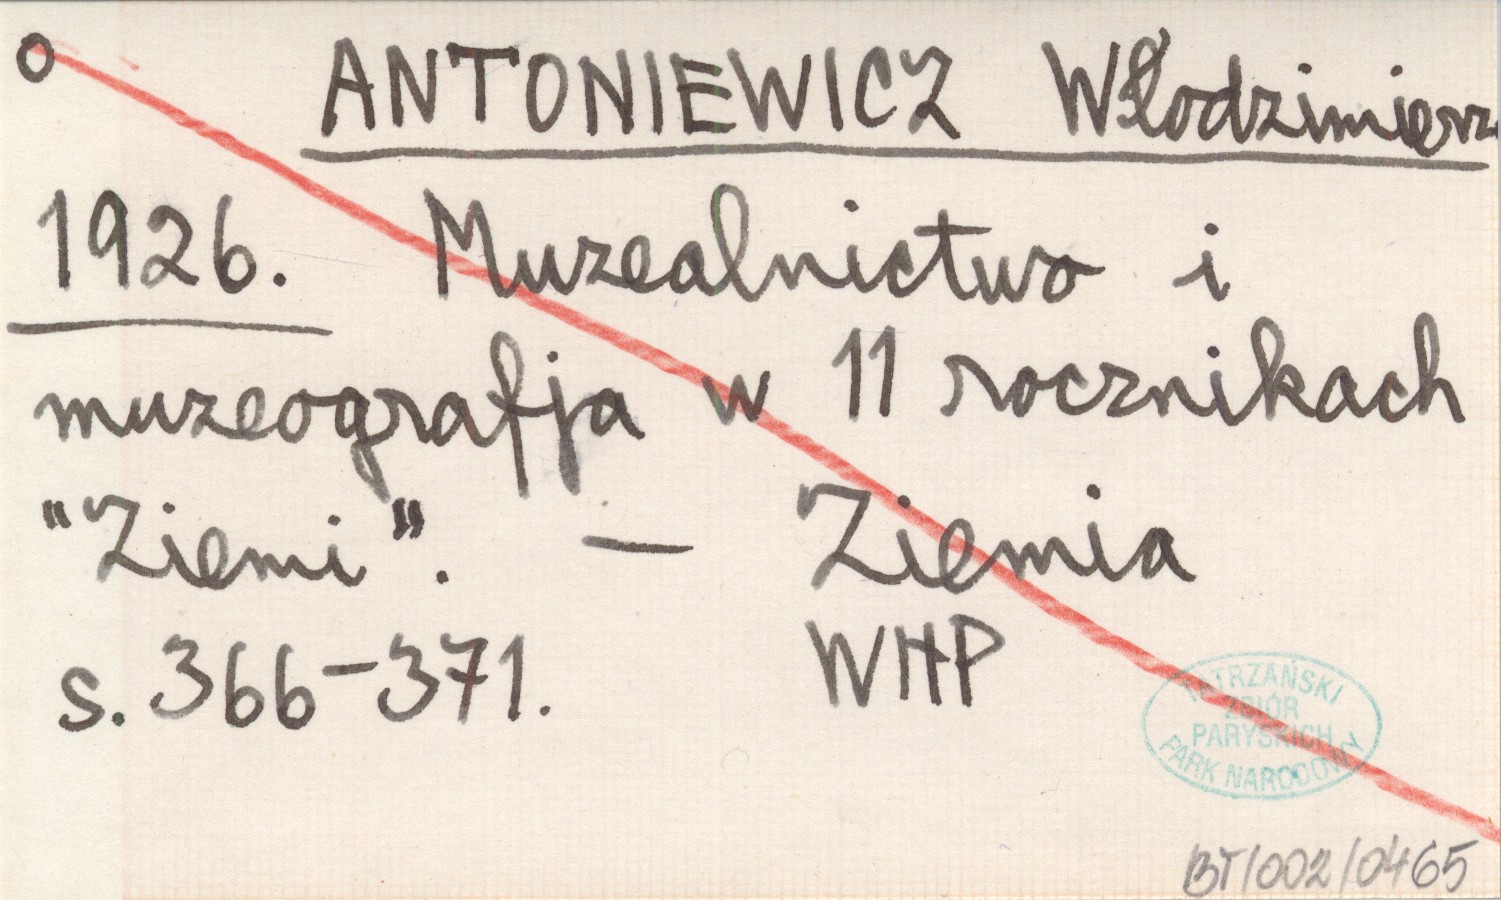 o ANTONIEWICZ Włodzimierz
1926. Muzealnictwo i
muzeografja w 11 rocznikach
"Ziemi". — Ziemia
s. 366-371. WHP
TATRZAŃSKI
ZBIÓR
PARYSKICH
PARK NARODOWY
BT/002/0465